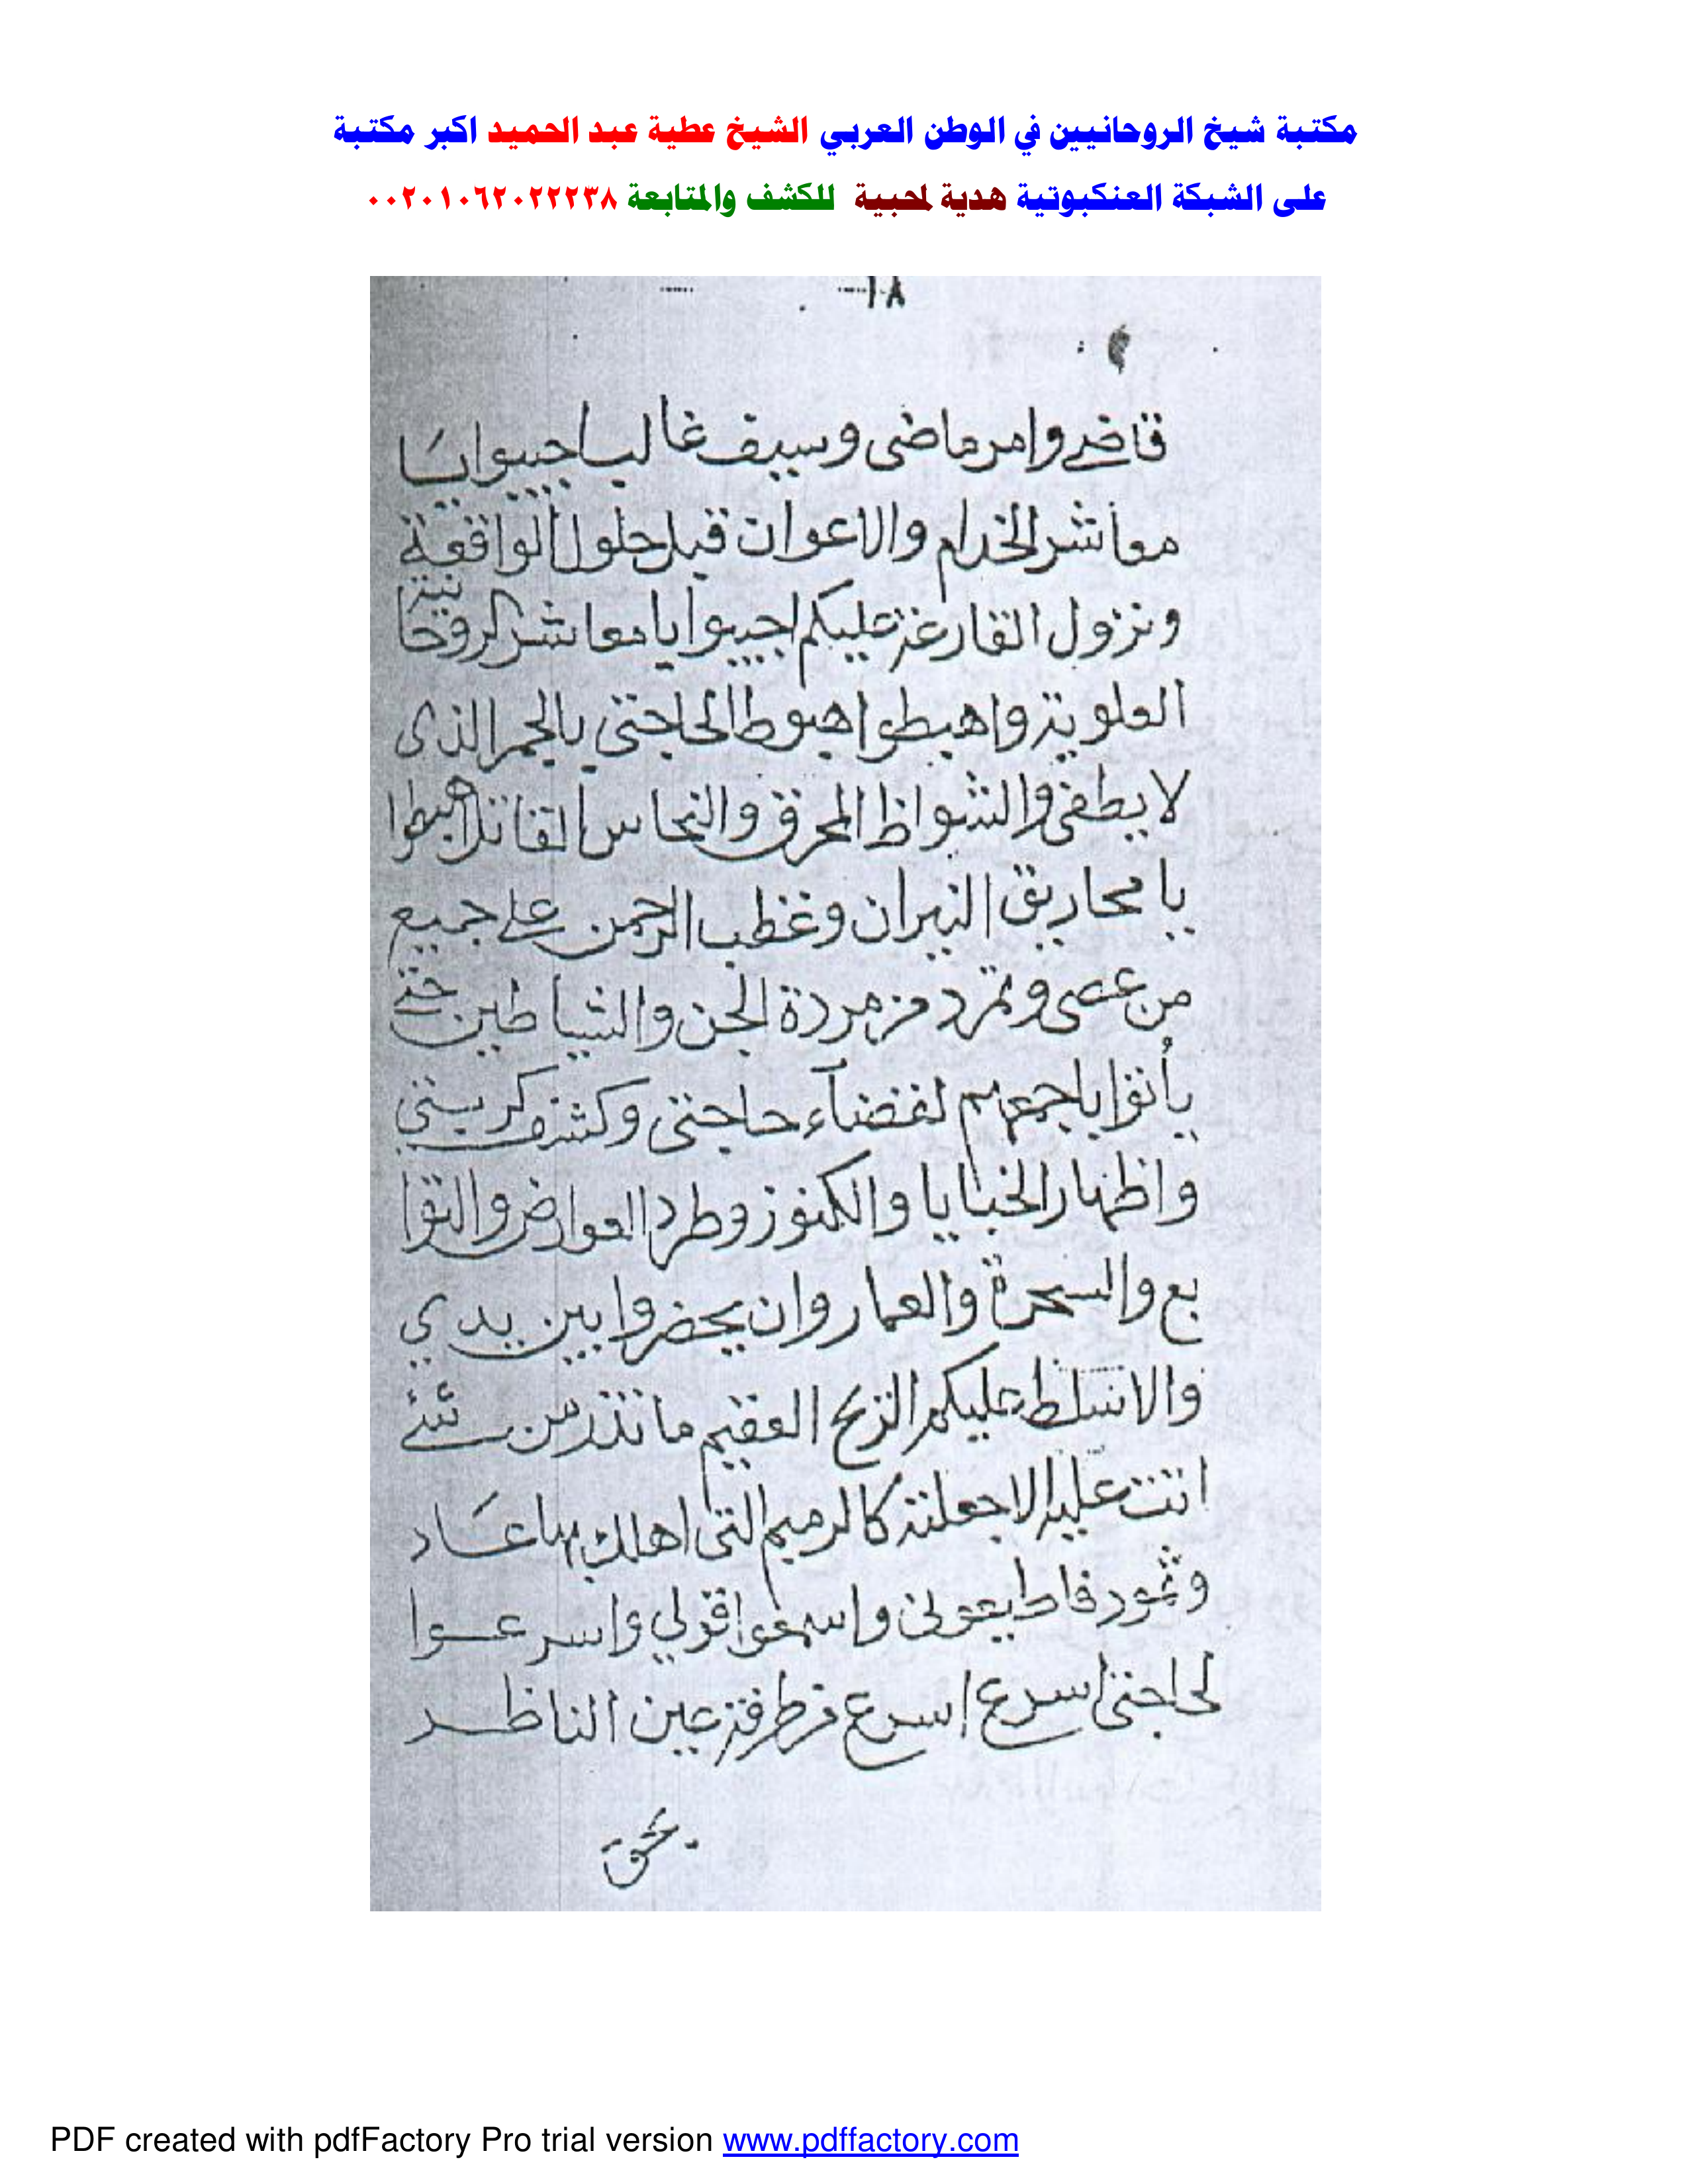 مكتبة شيخ الروحانيين في الوطن العربي الشيخ عطية عبد الحميد اكبر مكتبة
على الشبكة العنكبوتية هدية لمحبية للكشف والمتابعة ٠٠٢٠١٠٦٢٠٢٢٢٣٨
١٨
قاضي وامر ماضى وسيف غالب اجيبوا يا
معاشر الخدام والاعوان قبل حلول الواقعة
ونزول القارعة عليكم اجيبوا يا معاشر الروحانية
العلوية واهبطوا هبوطا لحاجتى بالجمر الذى
لا يطفى والشواظ المحرق والنحاس القاتل اهبطوا
يا محاريق النيران وغظب الرحمن على جميع
من عصى وتمرد من مردة الجن والشياطين حتى
يأتوا باجمعهم لقضآء حاجتى وكشف كربتى
واظهار الخبايا والكنوز وطرد العوارض والتوا
بع والسحرة والعمار وان يحضروا بين يدي
والا نسلط عليكم الريح العقيم ما تذر من شئ
اتت عليه الا جعلته كالرميم التى اهلك بها عاد
وثمود فاطيعونى واسمعوا قولي واسرعوا
لحاجتى اسرع اسرع من طرفة عين الناظر
بحق
PDF created with pdfFactory Pro trial version www.pdffactory.com